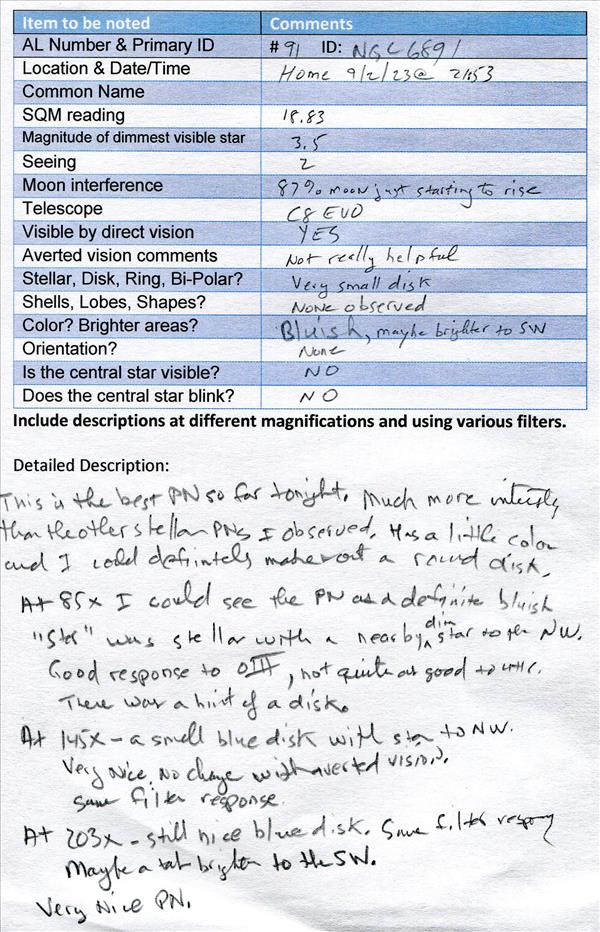 Item to be noted Comments
AL Number & Primary ID # 91 ID: NGC 6891
Location & Date/Time Home 9/2/23 @ 2153
Common Name
SQM reading 18.83
Magnitude of dimmest visible star 3.5
Seeing 2
Moon interference 87% moon just starting to rise
Telescope C8 EVO
Visible by direct vision YES
Averted vision comments Not really helpful
Stellar, Disk, Ring, Bi-Polar? Very small disk
Shells, Lobes, Shapes? None observed
Color? Brighter areas? Bluish, maybe brighter to SW
Orientation? None
Is the central star visible? NO
Does the central star blink? NO
Include descriptions at different magnifications and using various filters.
Detailed Description:
This is the best PN so far tonight. Much more
than the other stellar PNs I observed. Has a little color
and I could definitely make out a round disk.
At 85x I could see the PN as a definite bluish
"star" was stellar with a nearby dim star to the NW.
Good response to OIII, not quite as good to UHC.
There was a hint of a disk.
At 145x - a small blue disk with star to NW.
Very nice. No change with averted vision.
Same filter response.
At 203x - still nice blue disk. Same filter
Maybe a tat brighter to the SW.
Very Nice PN.